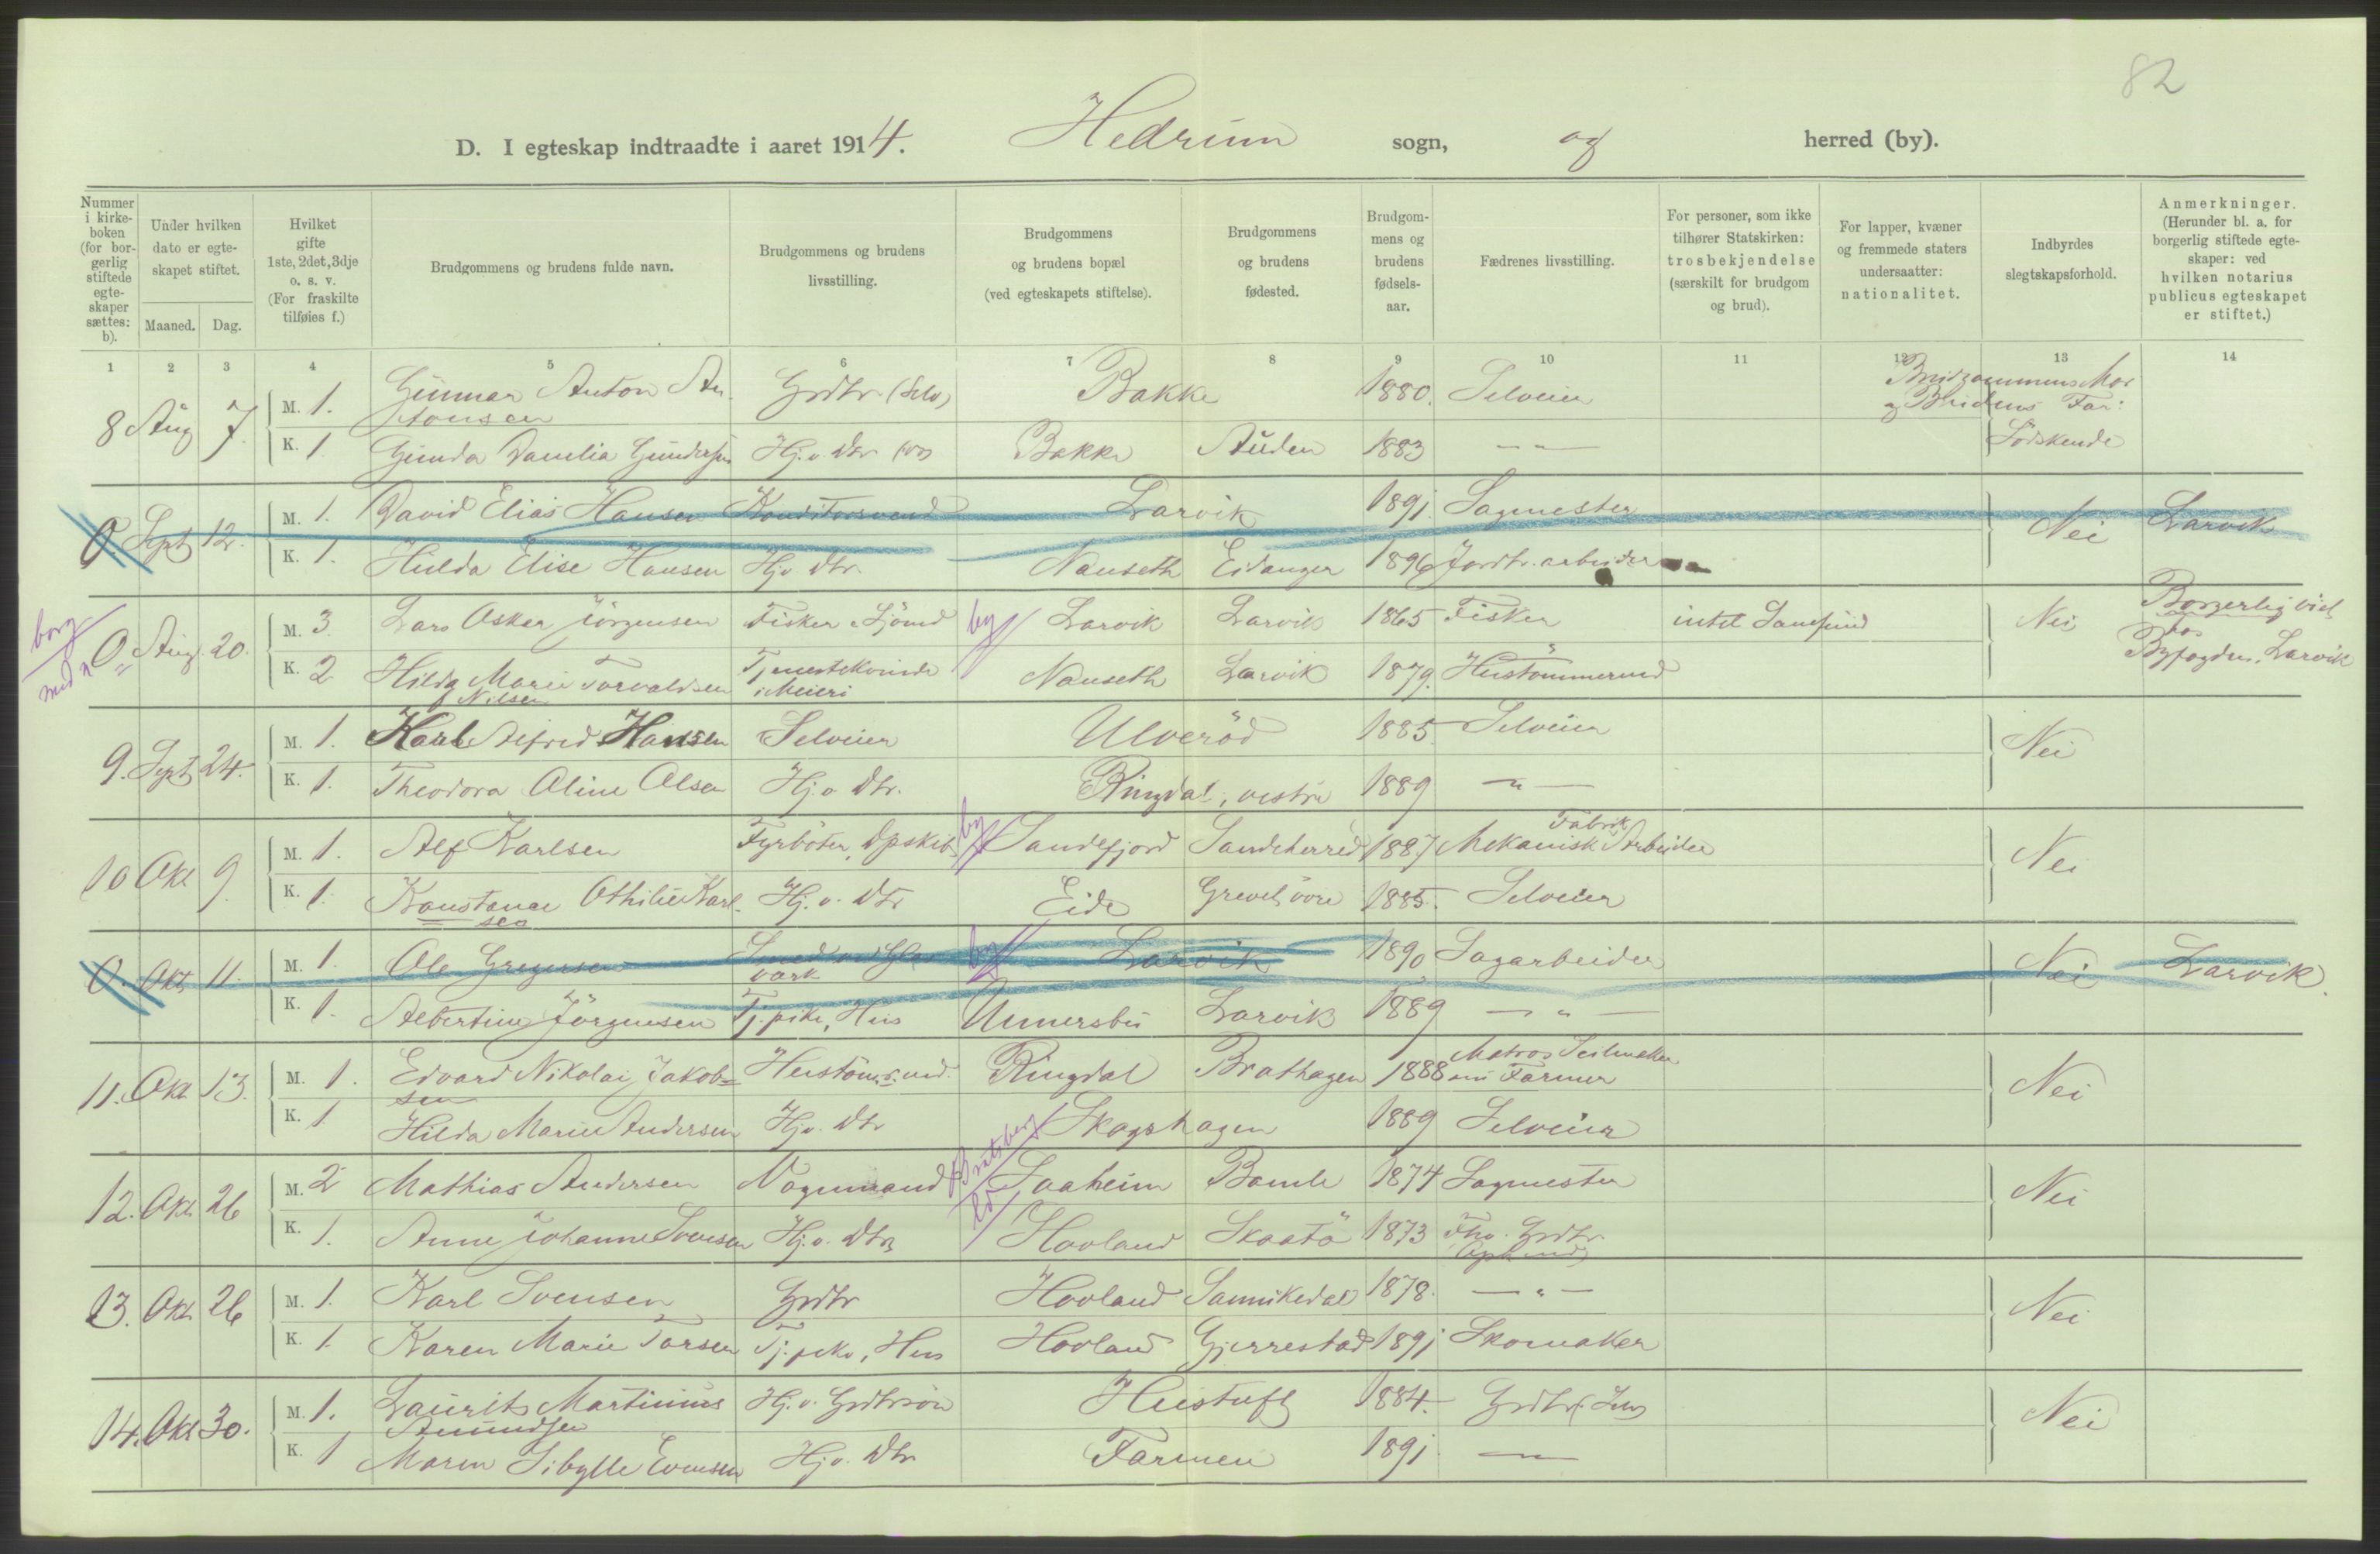 82
D. I egteskap indtraadte i aaret 1914. Hedrum sogn, og herred (by).
Nummer i kirkeboken (for borgerlig stiftede egteskaper sættes: b).
Under hvilken dato er egteskapet stiftet.
Maaned. Dag.
Hvilket gifte 1ste, 2det, 3dje o. s. v. (For fraskilte tilføies f.)
Brudgommens og brudens fulde navn.
Brudgommens og brudens livsstilling.
Brudgommens og brudens bopæl (ved egteskapets stiftelse).
Brudgommens og brudens fødested.
Brudgommens og brudens fødselsaar.
Fædrenes livsstilling.
For personer, som ikke tilhører Statskirken: trosbekjendelse (særskilt for brudgom og brud).
For lapper, kvæner og fremmede staters undersaatter: nationalitet.
Indbyrdes slegtskapsforhold.
Anmerkninger. (Herunder bl. a. for borgerlig stiftede egteskaper: ved hvilken notarius publicus egteskapet er stiftet.)
1 2 3 4 5 6 7 8 9 10 11 12 13 14
8 Aug 7. M. 1. Gunnar Anton Antonsen Grdbr. (Selv) Bakke 1880. Selveier Brudgommens Mor og Brudens Far: Södskende
K. 1 Gunda Damilia Gundersen Hj. v Dtr. Bakke Auden 1883 — " —
0. Sept 12. M. 1. David Elias Hansen Konditorsvend Larvik 1891. Sagmester Nei Larvik
K. 1. Hulda Elise Hansen Hj. v Dtr. Nanseth Eidanger 1896 Jordbr. arbeider
borg
0 Aug. 20. M. 3 Lars Oskar Jörgensen Fisker Sjömd by Larvik Larvik 1865 Fisker intet Samfund Nei Borgerlig viet hos Byfogden, Larvik
K. 2 Hilda Marie Torvaldsen f Nilsen Tjenestekvinde i Meieri Nanseth Larvik 1879. Hustömmermd
9. Sept 24. M. 1. Karl Alfred Hansen Selveier Ulveröd 1885 Selveier Nei
K. 1. Theodora Oline Olsen Hj. v Dtr. Ringdal, vestre 1889 — " —
10 Okt 9. M. 1. Alf Karlsen Fyrböter, Dpskib by Sandefjord Sandeherred 1887 Mekanisk Fabrik Arbeider Nei
K. 1. Konstance Othilie Karlsen Hj. v. Dtr Eide 1885. Selveier
0. Okt 11. M. 1. Ole Gregersen Smed ved Glasværk by Larvik 1890 Sagarbeider Nei Larvik.
K. 1. Albertine Jörgensen Tj. pike, Hus Unnersbu Larvik 1889 — " —
11. Okt 13. M. 1. Edvard Nikolai Jakobsen Hustöm. md. Ringdal Brathagen 1888 Matros Seilmaker nu Farmer Nei
K. 1 Hilda Marie Andersen Hj. v. Dtr Skogshagen 1889 Selveier
12. Okt. 26 M. 2 Mathias Andersen Vognmand Bratsberg Saaheim Bamle 1874 Sagmester Nei
K. 1. Anne Johanne Svensen Hj. v. Dtr Hovland Skaatö 1873 Fhv. Grdbr.
13. Okt. 26 M. 1. Karl Svensen Grdbr Hovland Sannikedal 1878. — " — Nei
K. 1. Karen Marie Torsen Tj. pike, Hus Hovland Gjerrestad 1891 Skomaker
14. Okt 30. M. 1. Laurits Martinius Amundsen Hj. v. Grdbrsön Hustuft 1884. Grdbr. (Selv) Nei
K. 1 Maren Sibylle Evensen Hj. v. Dtr Farmen 1891. — " —